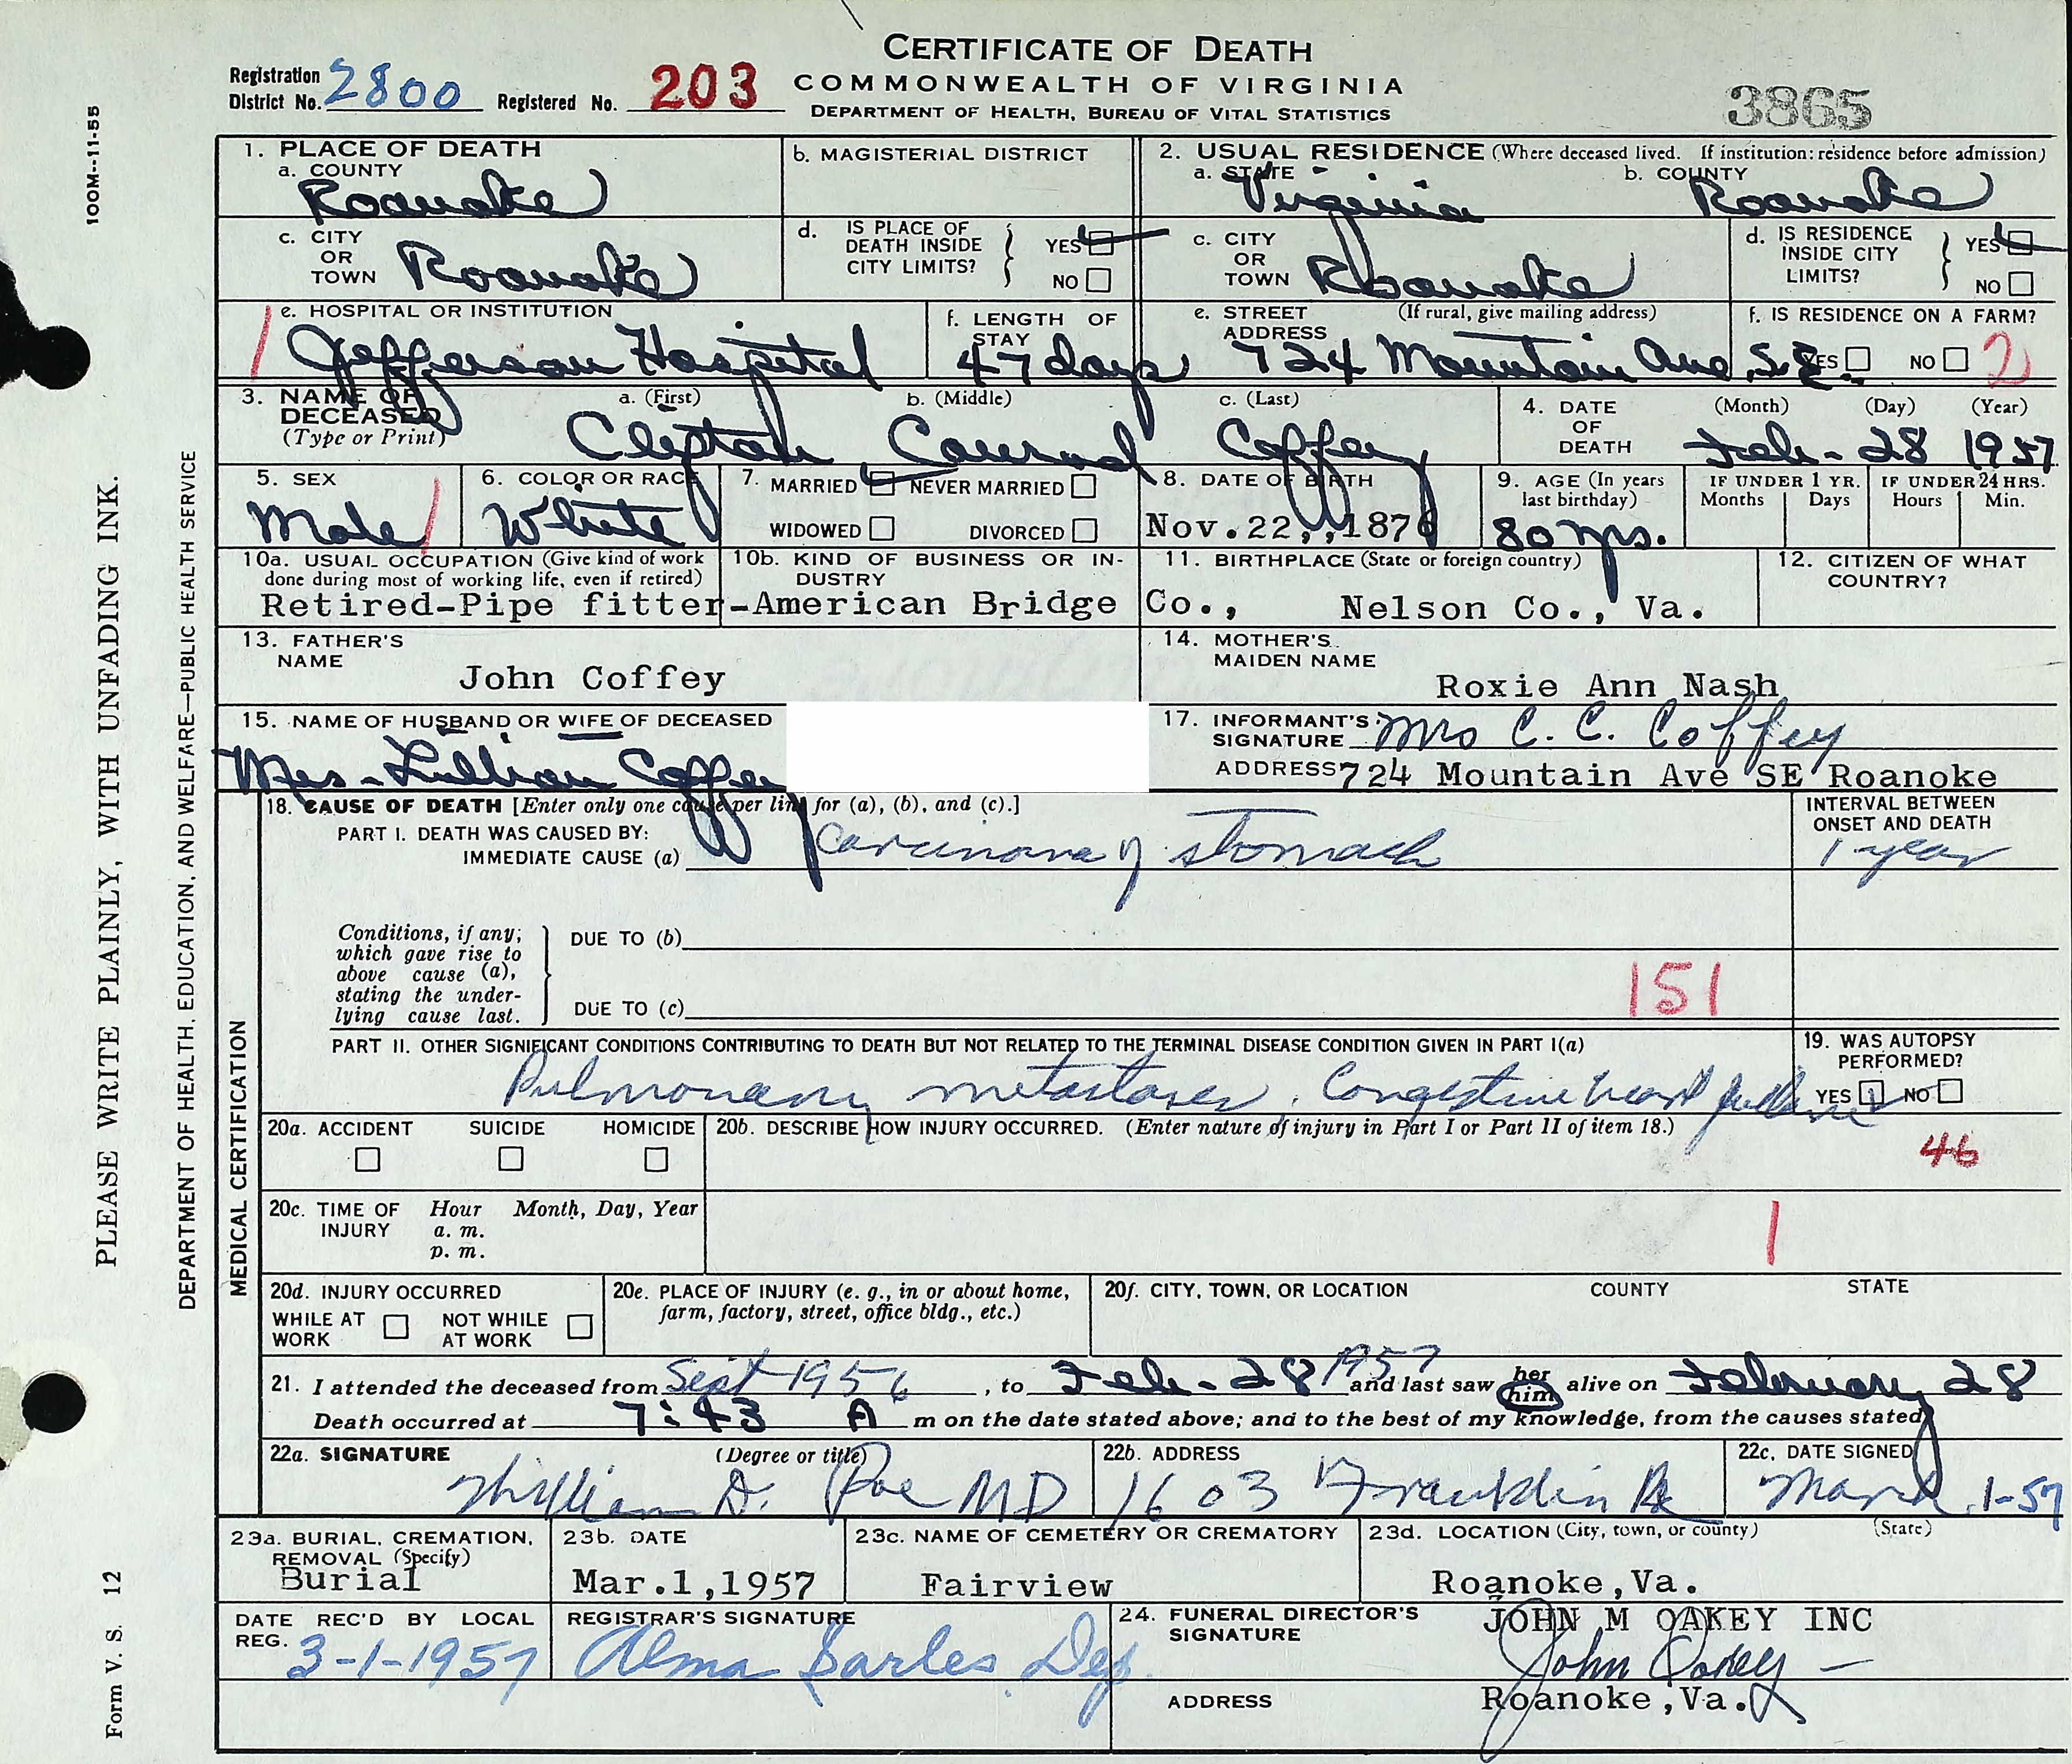 CERTIFICATE OF DEATH
COMMONWEALTH OF VIRGINIA
DEPARTMENT OF HEALTH, BUREAU OF VITAL STATISTICS
Registration District No. 2800 Registered No. 203
3865
100M--11-55
PLEASE WRITE PLAINLY, WITH UNFADING INK.
DEPARTMENT OF HEALTH, EDUCATION, AND WELFARE—PUBLIC HEALTH SERVICE
Form V. S. 12
1. PLACE OF DEATH
a. COUNTY Roanoke
b. MAGISTERIAL DISTRICT
2. USUAL RESIDENCE (Where deceased lived. If institution: residence before admission)
a. STATE Virginia
b. COUNTY Roanoke
c. CITY OR TOWN Roanoke
d. IS PLACE OF DEATH INSIDE CITY LIMITS? YES NO
c. CITY OR TOWN Roanoke
d. IS RESIDENCE INSIDE CITY LIMITS? YES NO
1 e. HOSPITAL OR INSTITUTION Jefferson Hospital
f. LENGTH OF STAY 47 days
e. STREET ADDRESS (If rural, give mailing address) 724 Mountain Ave, S.E.
f. IS RESIDENCE ON A FARM? YES NO 2
3. NAME OF DECEASED (Type or Print)
a. (First) b. (Middle) c. (Last)
Clifton Conrad Coffey
4. DATE OF DEATH (Month) (Day) (Year)
Feb- 28 1957
5. SEX Male 1
6. COLOR OR RACE White
7. MARRIED NEVER MARRIED
WIDOWED DIVORCED
8. DATE OF BIRTH Nov.22,,1876
9. AGE (In years last birthday) 80 yrs.
IF UNDER 1 YR. Months Days
IF UNDER 24 HRS. Hours Min.
10a. USUAL OCCUPATION (Give kind of work done during most of working life, even if retired)
10b. KIND OF BUSINESS OR INDUSTRY
11. BIRTHPLACE (State or foreign country)
12. CITIZEN OF WHAT COUNTRY?
Retired-Pipe fitter-American Bridge Co., Nelson Co., Va.
13. FATHER'S NAME
John Coffey
14. MOTHER'S MAIDEN NAME
Roxie Ann Nash
15. NAME OF HUSBAND OR WIFE OF DECEASED
Mrs - Lillian Coffey
17. INFORMANT'S SIGNATURE Mrs C. C. Coffey
ADDRESS 724 Mountain Ave SE Roanoke
MEDICAL CERTIFICATION
18. CAUSE OF DEATH [Enter only one cause per line for (a), (b), and (c).]
INTERVAL BETWEEN ONSET AND DEATH
PART I. DEATH WAS CAUSED BY:
IMMEDIATE CAUSE (a) Carcinoma of stomach 1 year
Conditions, if any; which gave rise to above cause (a), stating the underlying cause last.
DUE TO (b)
DUE TO (c)
151
PART II. OTHER SIGNIFICANT CONDITIONS CONTRIBUTING TO DEATH BUT NOT RELATED TO THE TERMINAL DISEASE CONDITION GIVEN IN PART I(a)
Pulmonary metastases, Congestive heart failure
19. WAS AUTOPSY PERFORMED?
YES NO
20a. ACCIDENT SUICIDE HOMICIDE
20b. DESCRIBE HOW INJURY OCCURRED. (Enter nature of injury in Part I or Part II of item 18.)
46
20c. TIME OF INJURY Hour Month, Day, Year
a. m.
p. m.
1
20d. INJURY OCCURRED
WHILE AT WORK NOT WHILE AT WORK
20e. PLACE OF INJURY (e. g., in or about home, farm, factory, street, office bldg., etc.)
20f. CITY, TOWN, OR LOCATION COUNTY STATE
21. I attended the deceased from Sept 1956, to Feb- 28 1957 and last saw her him alive on February 28
Death occurred at 7:43 A m on the date stated above; and to the best of my knowledge, from the causes stated
22a. SIGNATURE (Degree or title)
William D. Poe MD
22b. ADDRESS
1603 Franklin Rd
22c. DATE SIGNED
March 1-57
23a. BURIAL, CREMATION, REMOVAL (Specify)
Burial
23b. DATE
Mar.1,1957
23c. NAME OF CEMETERY OR CREMATORY
Fairview
23d. LOCATION (City, town, or county) (State)
Roanoke,Va.
DATE REC'D BY LOCAL REG. 3-1-1957
REGISTRAR'S SIGNATURE
Alma Sarles, Dep.
24. FUNERAL DIRECTOR'S SIGNATURE
JOHN M OAKEY INC
John Oakey
ADDRESS Roanoke,Va.